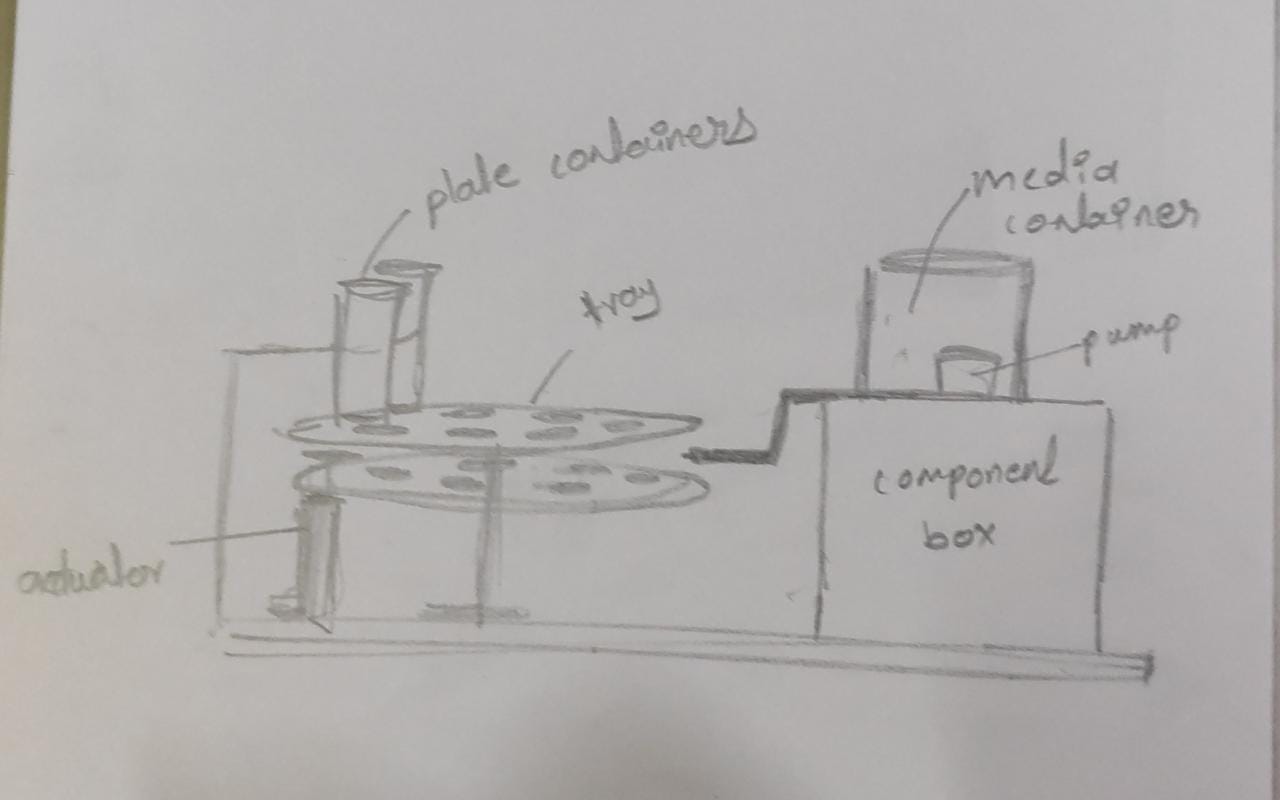 plate containers
media
container
tray
pump
component
box
actuator